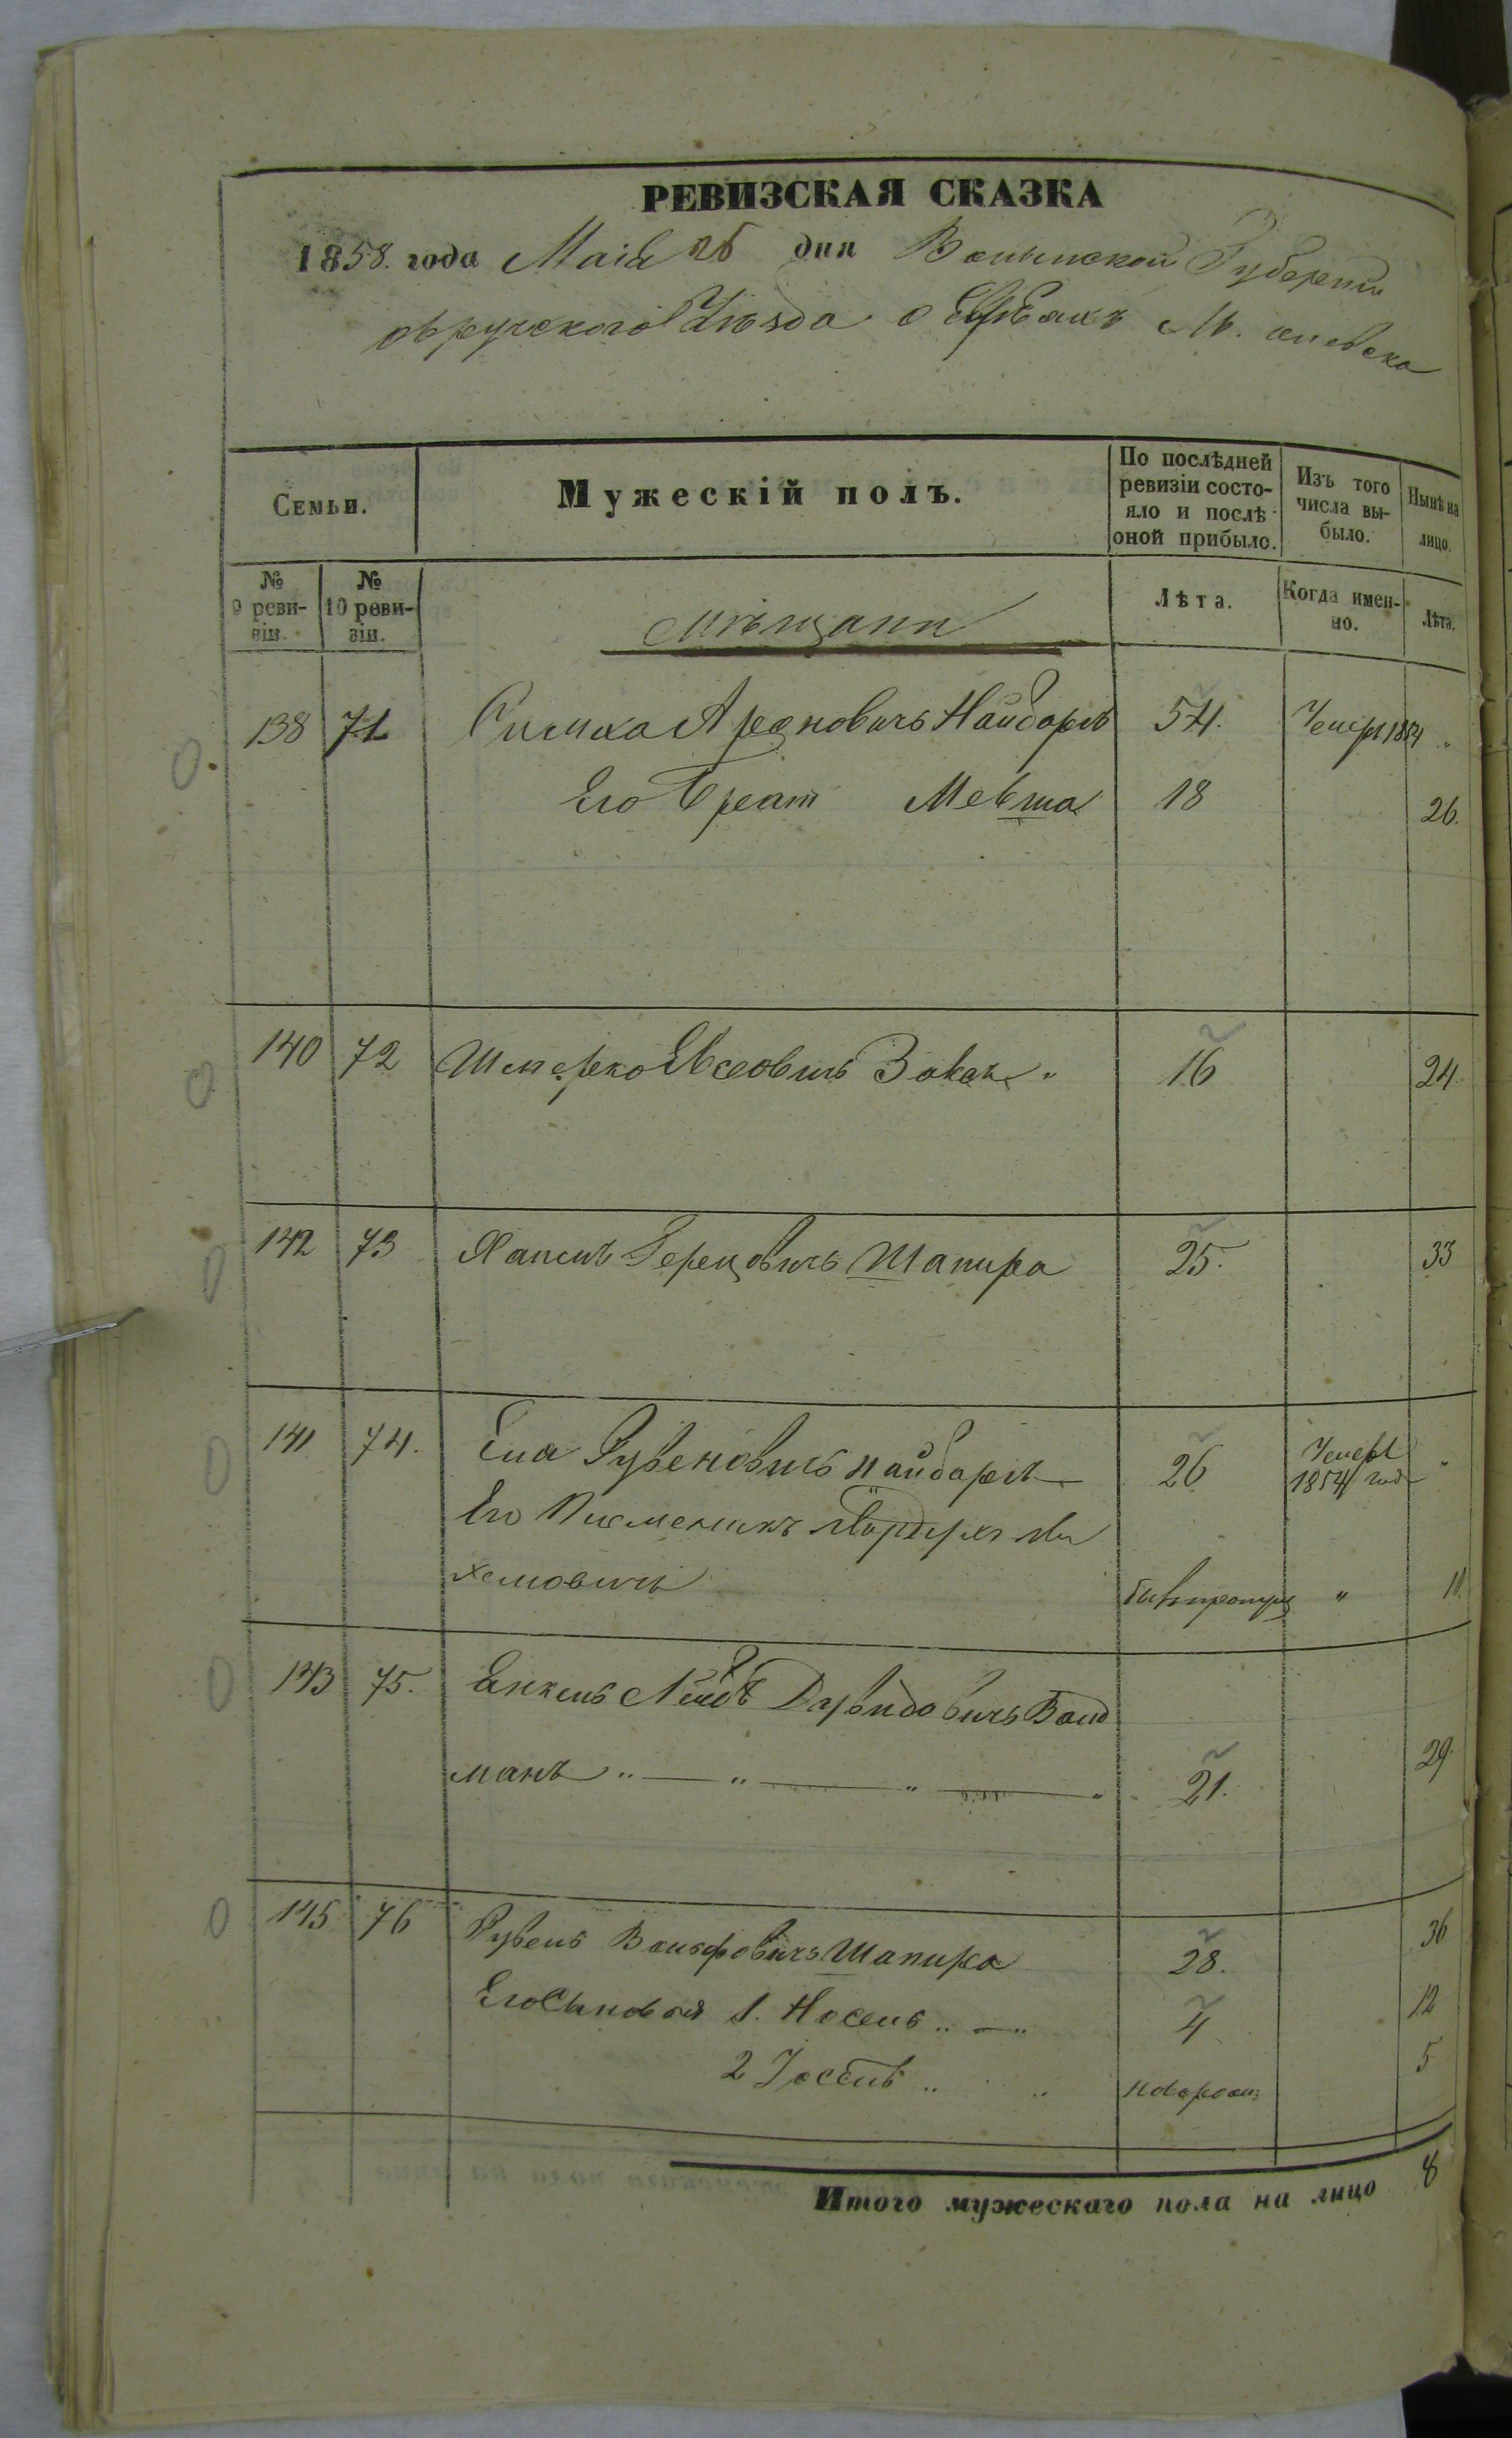 РЕВИЗСКАЯ СКАЗКА
1858. года Маія 26 дня Волынской Губерніи
овручского Уѣзда о Евреяхъ М. олевска
Семьи.
Мужескій полъ.
По послѣдней ревизіи состо-
яло и послѣ оной прибыло.
Изъ того числа вы-
было.
Нынѣ на лицо.
№ 9 реви-
зіи.
№ 10 реви-
зіи.
мѣщани
Лѣта.
Когда имен-
но.
Лѣта.
138 71 Симха Ароновичъ Найдоръ 54. Умеръ 1854 "
Его Братъ Мевша 18 26.
140 72 Шмерко Овсеовичъ Закъ " 16 24.
142 73 Герцовичъ Шапира 25. 33
141 74. Ела Рувеновичъ Найдоръ 26 Умеръ
1854 года "
Его Племеникъ
хемовичъ " 11.
143 75. Енкель Лейбъ Давидовичъ Валд
манъ " — " — " — " 21. 29
145 76 Рувенъ Вольфовичъ Шапира 28. 36
Его Сыновья 1. Носенъ " — " 4 12
2 Іосель " " новорож: 5
Итого мужескаго пола на лицо 8